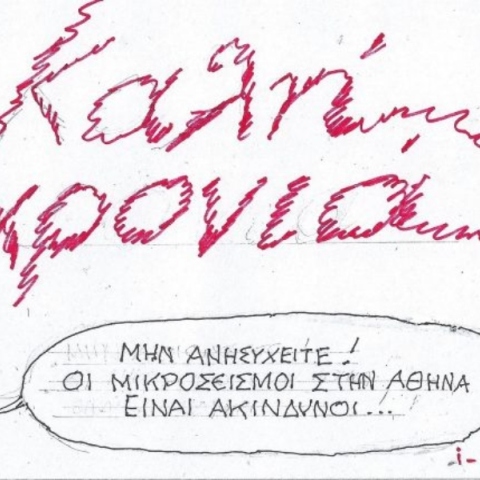 Καλή
χρονια
ΜΗΝ ΑΝΗΣΥΧΕΙΤΕ!
ΟΙ ΜΙΚΡΟΣΕΙΣΜΟΙ ΣΤΗΝ ΑΘΗΝΑ
ΕΙΝΑΙ ΑΚΙΝΔΥΝΟΙ...